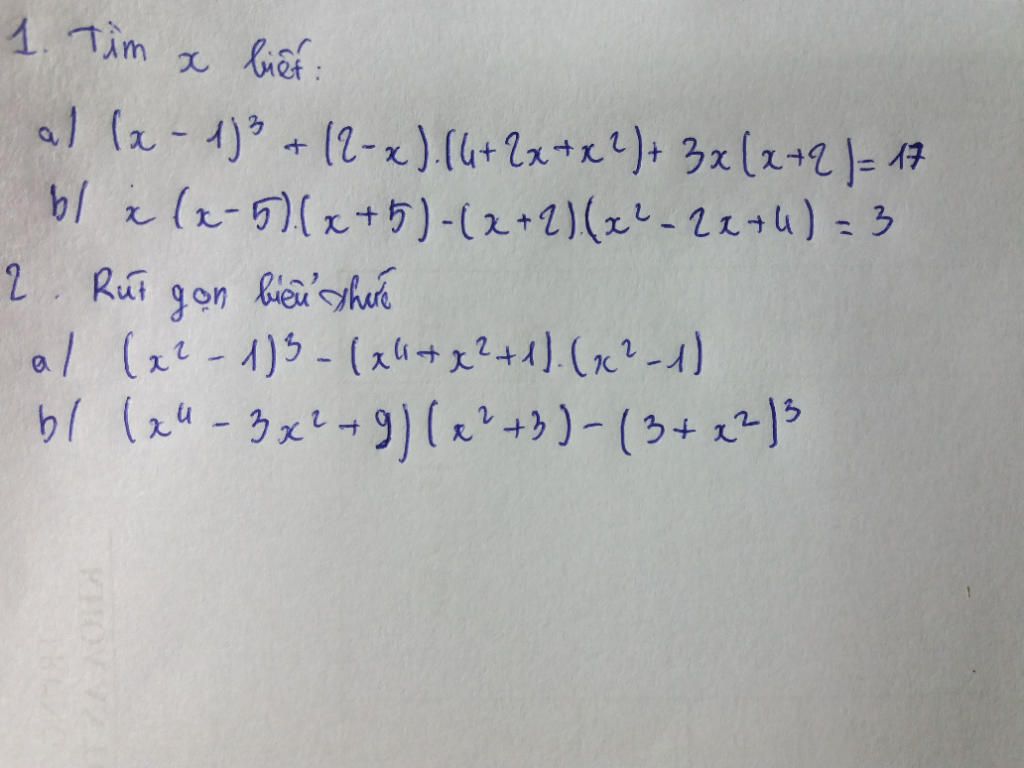 1. Tìm x biết:
a/ (x - 1)³ + (2-x).(4+2x+x²)+ 3x(x+2)= 17
b/ x (x-5).(x+5)-(x+2).(x²-2x+4) = 3
2. Rút gọn biểu thức
a/ (x² - 1)³ - (x⁴+x²+1).(x²-1)
b/ (x⁴ - 3x² + 9)(x²+3) - (3+x²)³